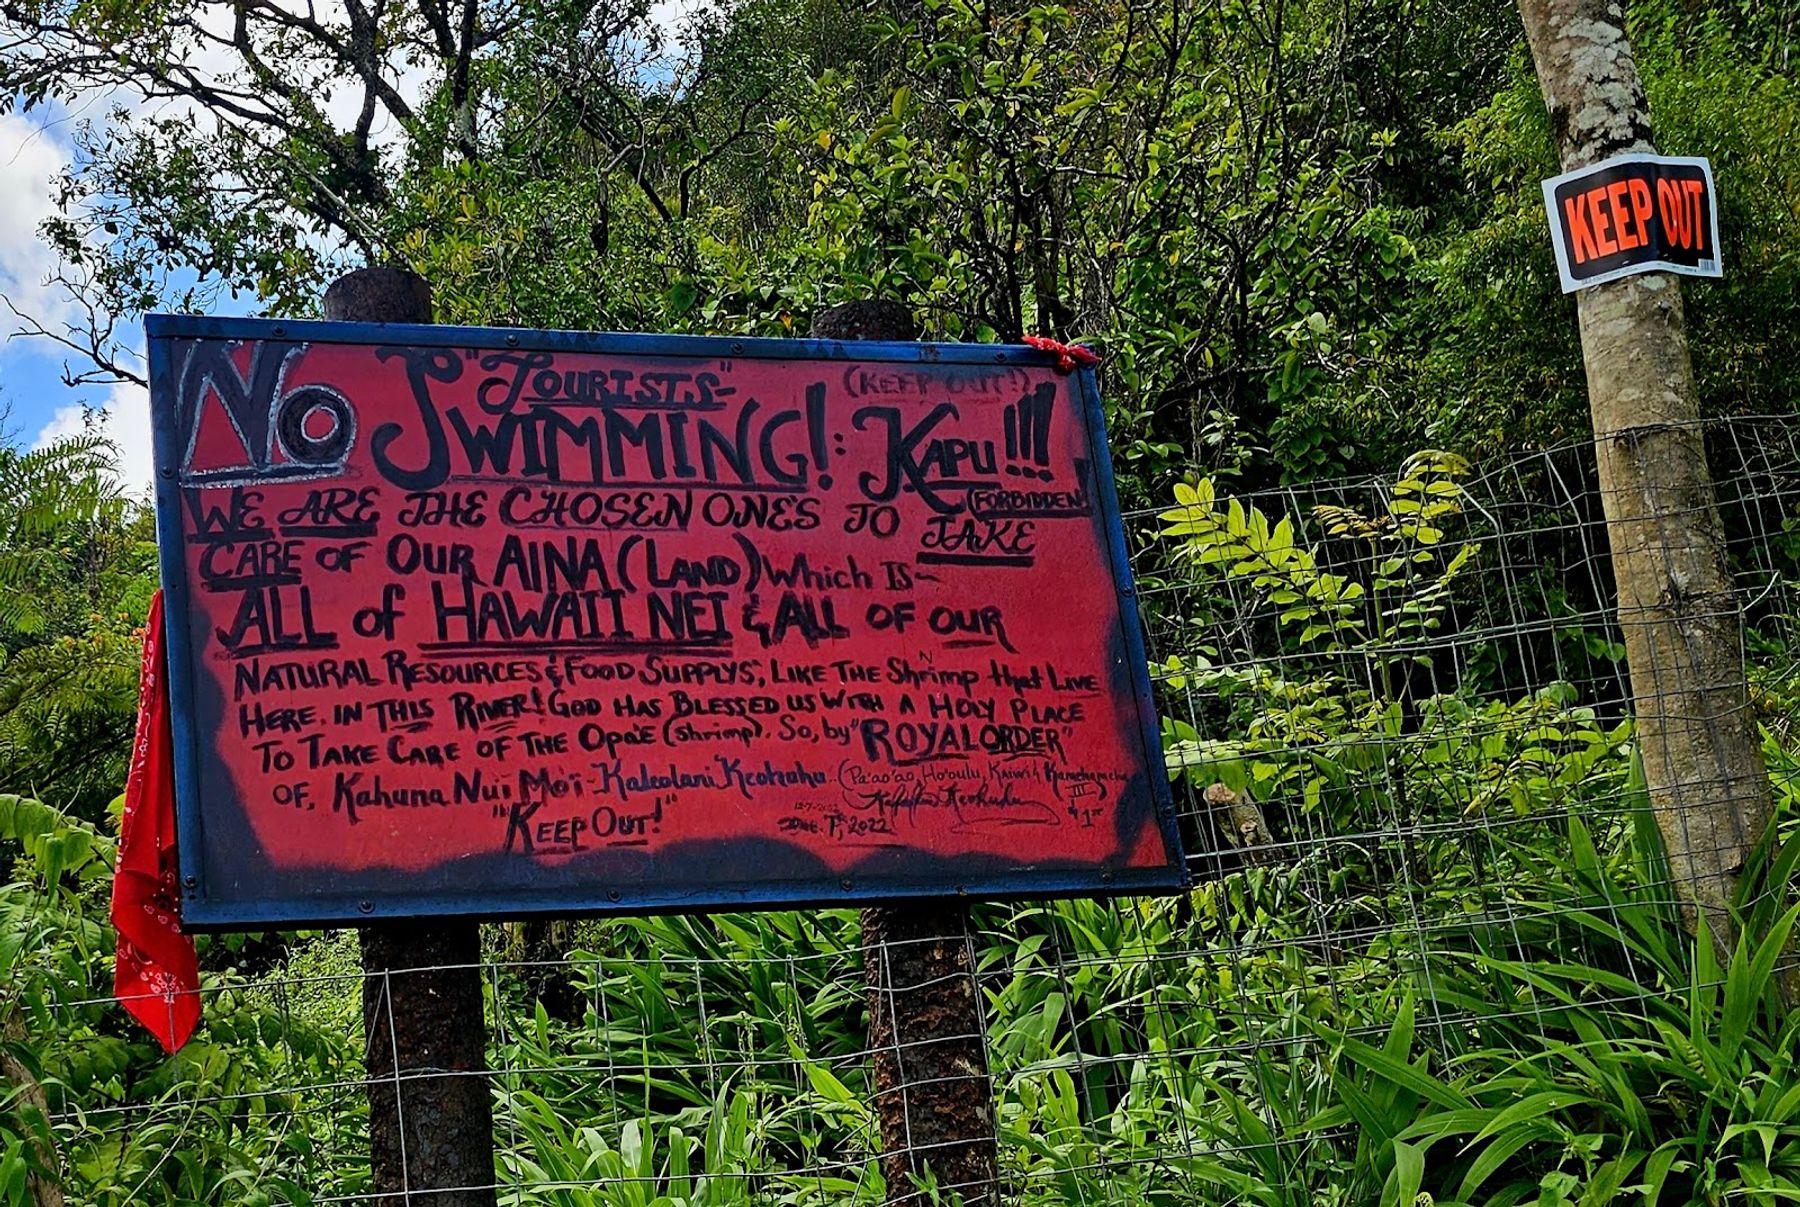 "TOURISTS" (KEEP OUT!)
NO SWIMMING! : KAPU!!!
(FORBIDDEN)
WE ARE THE CHOSEN ONE'S TO TAKE
CARE OF OUR AINA (LAND) Which IS~
ALL of HAWAII NEI & ALL OF OUR
NATURAL RESOURCES & FOOD SUPPLYS, LIKE THE Shrimp that LIVE
HERE, IN THIS RIVER! GOD HAS BLESSED US WITH A HOLY PLACE
TO TAKE CARE OF THE OpaE (shrimp). So, by "ROYAL ORDER"
OF, Kahuna Nui Moi-Kaleolani Keohuhu.. (Pa'ao'ao, Ho'oulu, Kaiwi &
III
& 1st
12-7-2022
7th, 2022
"KEEP OUT!"
KEEP OUT